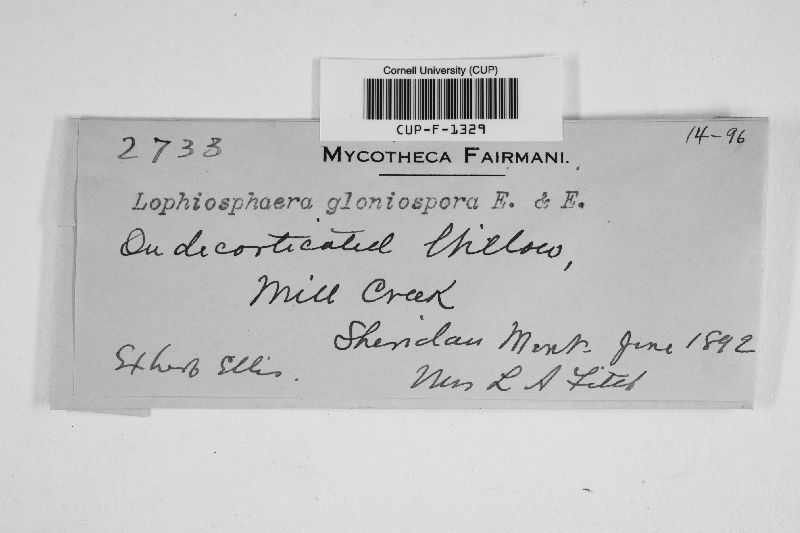 Cornell University (CUP)
CUP-F-1329
2733
14-96
MYCOTHECA FAIRMANI.
Lophiosphaera gloniospora E. & E.
On decorticated Willow,
Mill Creek
Sheridan Mont. June 1892
Ex herb Ellis.
Mrs L A Fitch